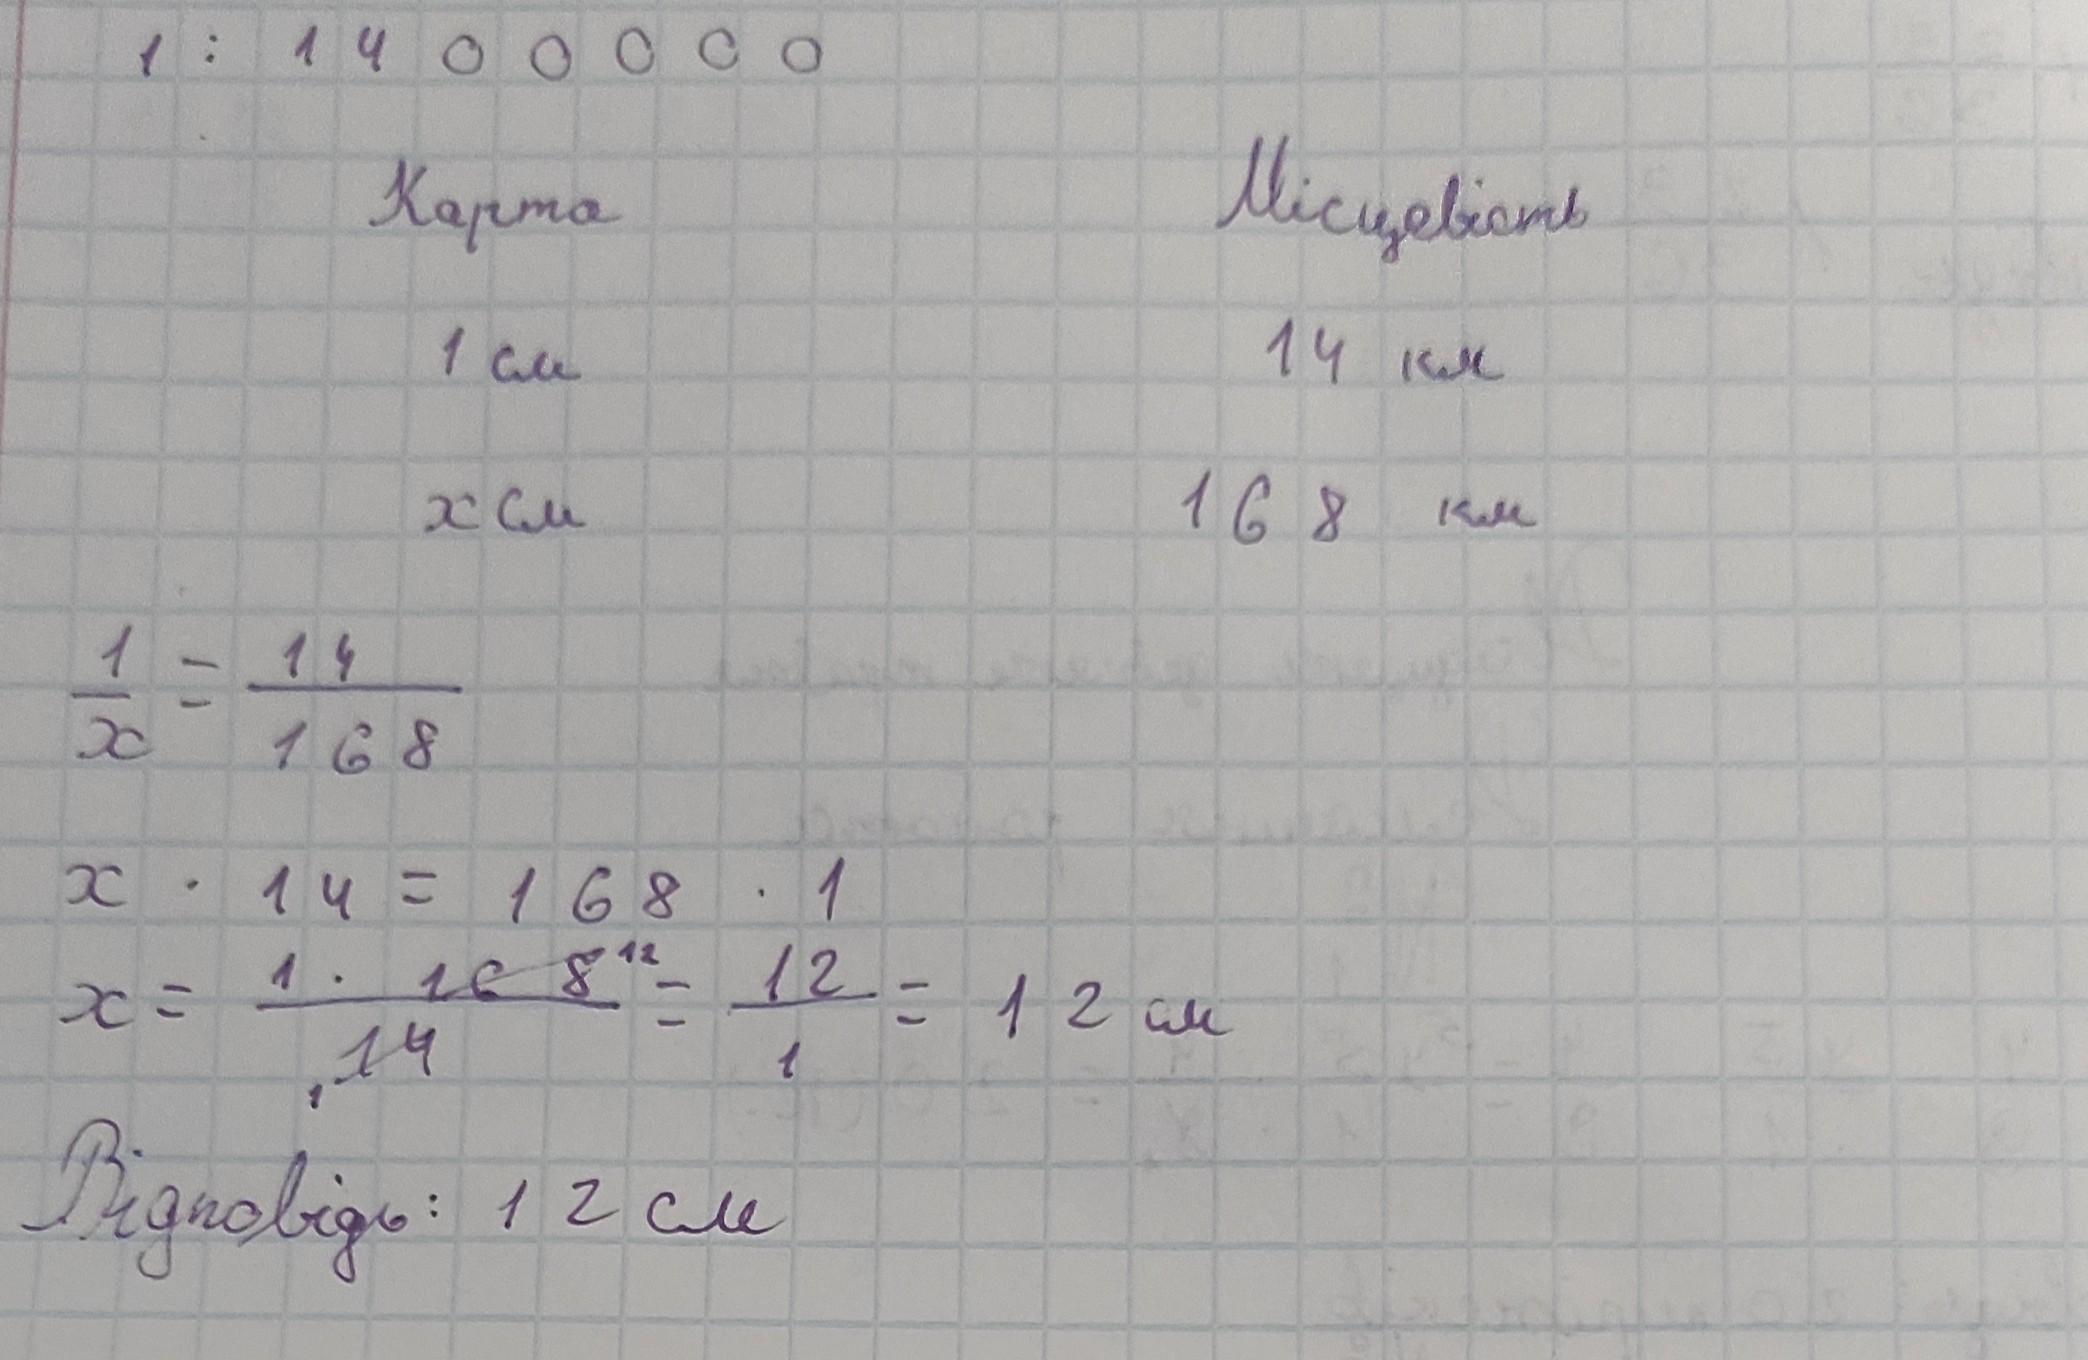 1 : 1400000
Карта Місцевість
1 см 14 км
x см 168 км
1/x = 14/168
x · 14 = 168 · 1
x = 1 · 168¹²/₁14 = 12/1 = 12 см
Відповідь: 12 см